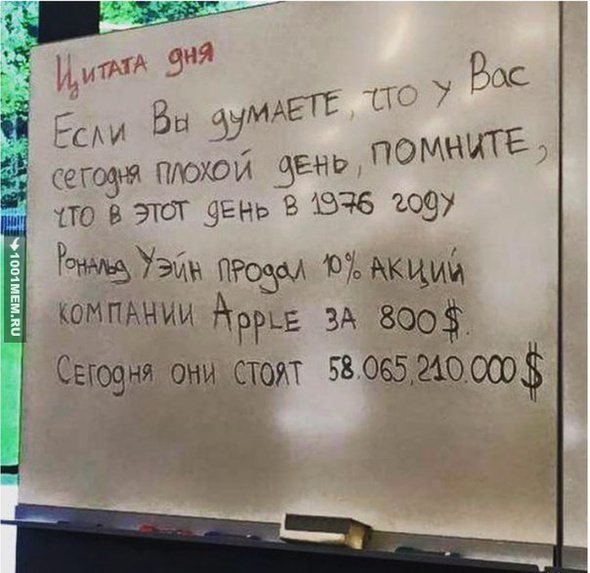 Цитата дня
Если Вы думаете, что у Вас
сегодня плохой день, помните,
что в этот день в 1976 году
Рональд Уэйн продал 10% акций
компании Apple за 800$.
Сегодня они стоят 58.065,210.000$
1001MEM.RU